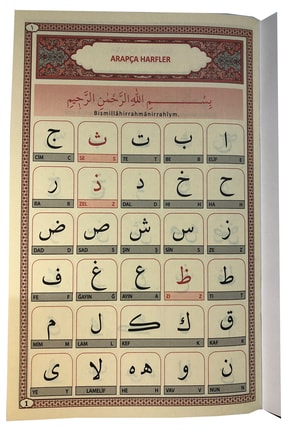 ١
ARAPÇA HARFLER
بِسْمِ اللّٰهِ الرَّحْمٰنِ الرَّحِيمِ
Bismillâhirrahmânirrahîym.
ا ب ت ث ج
ELİF E BE B TE T SE S CİM C
ح خ د ذ ر
HA H HI H DAL D ZEL Z RA R
ز س ش ص ض
ZE Z SİN S ŞİN Ş SAD S DAD D
ط ظ ع غ ف
TI T ZI Z AYIN A ĞAYIN Ğ FE F
ق ك ک ل م
KAF K KEF K LAM L MİM M
ن و ه ه لا ى
NUN N VAV V HE H LAMELİF YE Y
1